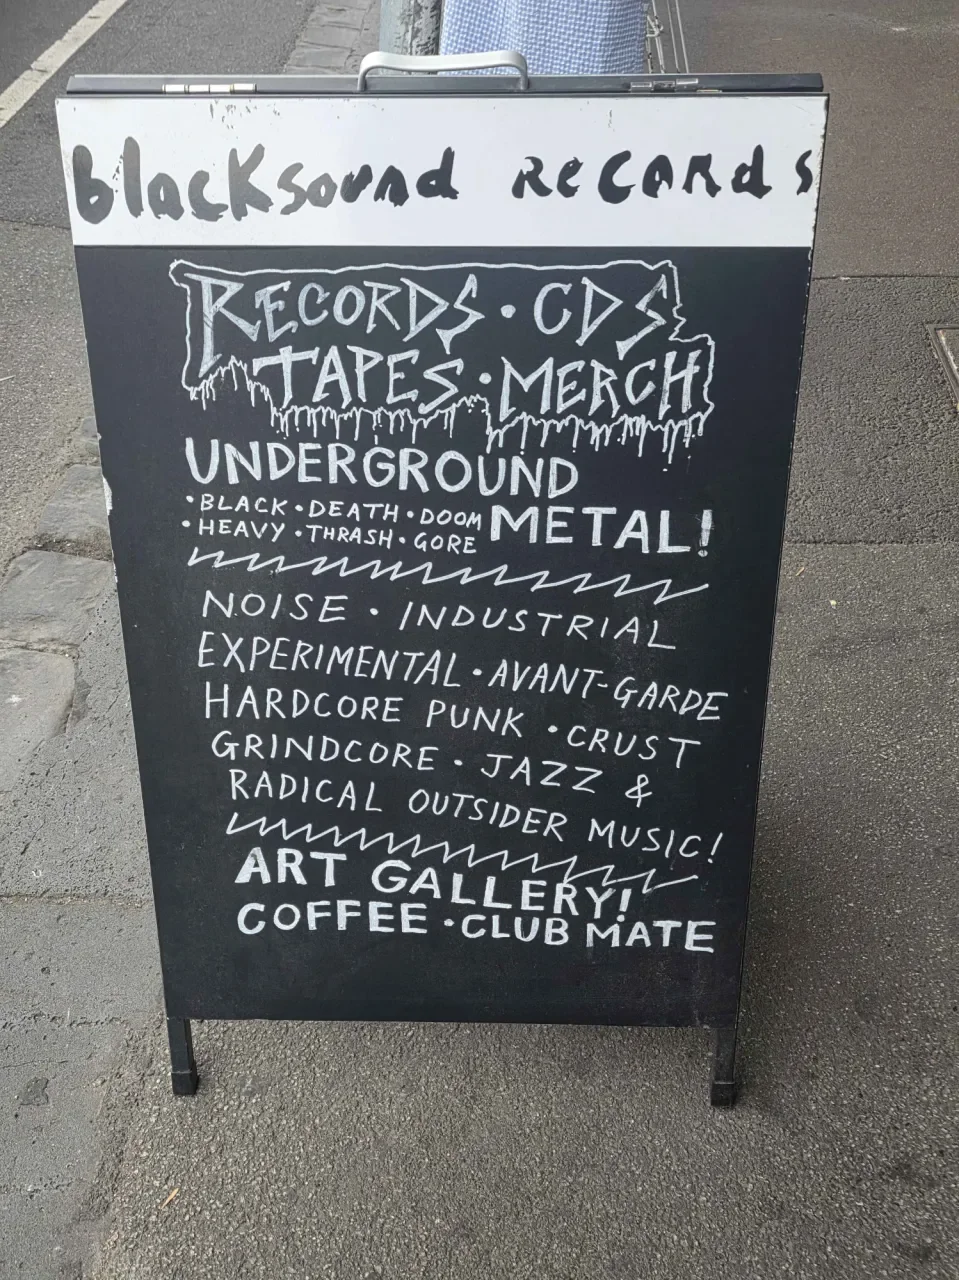 blacksound records
RECORDS · CDS
TAPES · MERCH
UNDERGROUND
· BLACK · DEATH · DOOM METAL!
· HEAVY · THRASH · GORE
NOISE · INDUSTRIAL
EXPERIMENTAL · AVANT-GARDE
HARDCORE PUNK · CRUST
GRINDCORE · JAZZ &
RADICAL OUTSIDER MUSIC!
ART GALLERY!
COFFEE · CLUB MATE